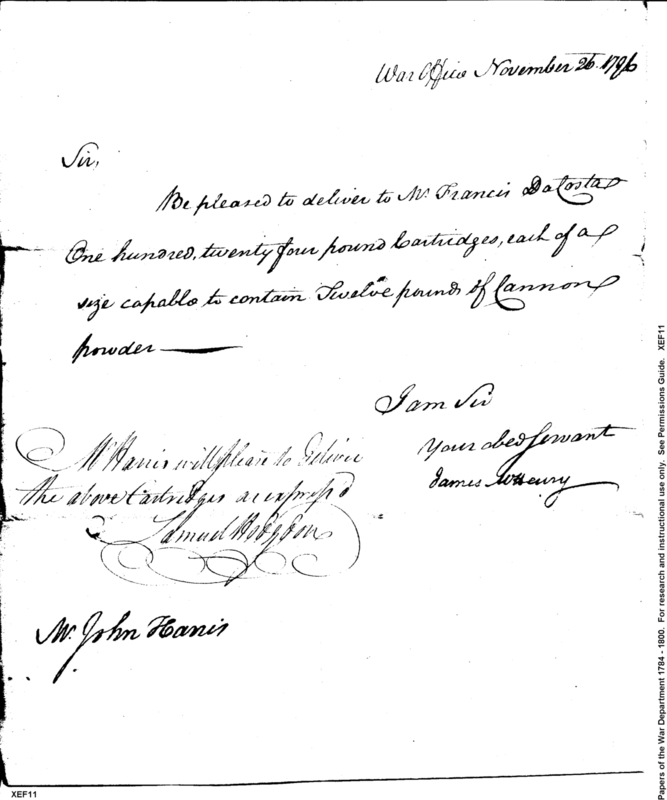 War Office November 26. 1796
Sir,
Be pleased to deliver to Mr. Francis DaCosta
One hundred, twenty four pound Cartridges, each of a
size capable to contain Twelve pounds of Cannon
powder
I am Sir
Your obed servant
James McHenry
Mr Harris will please to deliver
the above Cartridges as express'd
Samuel Hodgdon
Mr. John Harris
XEF11
Papers of the War Department 1784 - 1800. For research and instructional use only. See Permissions Guide. XEF11